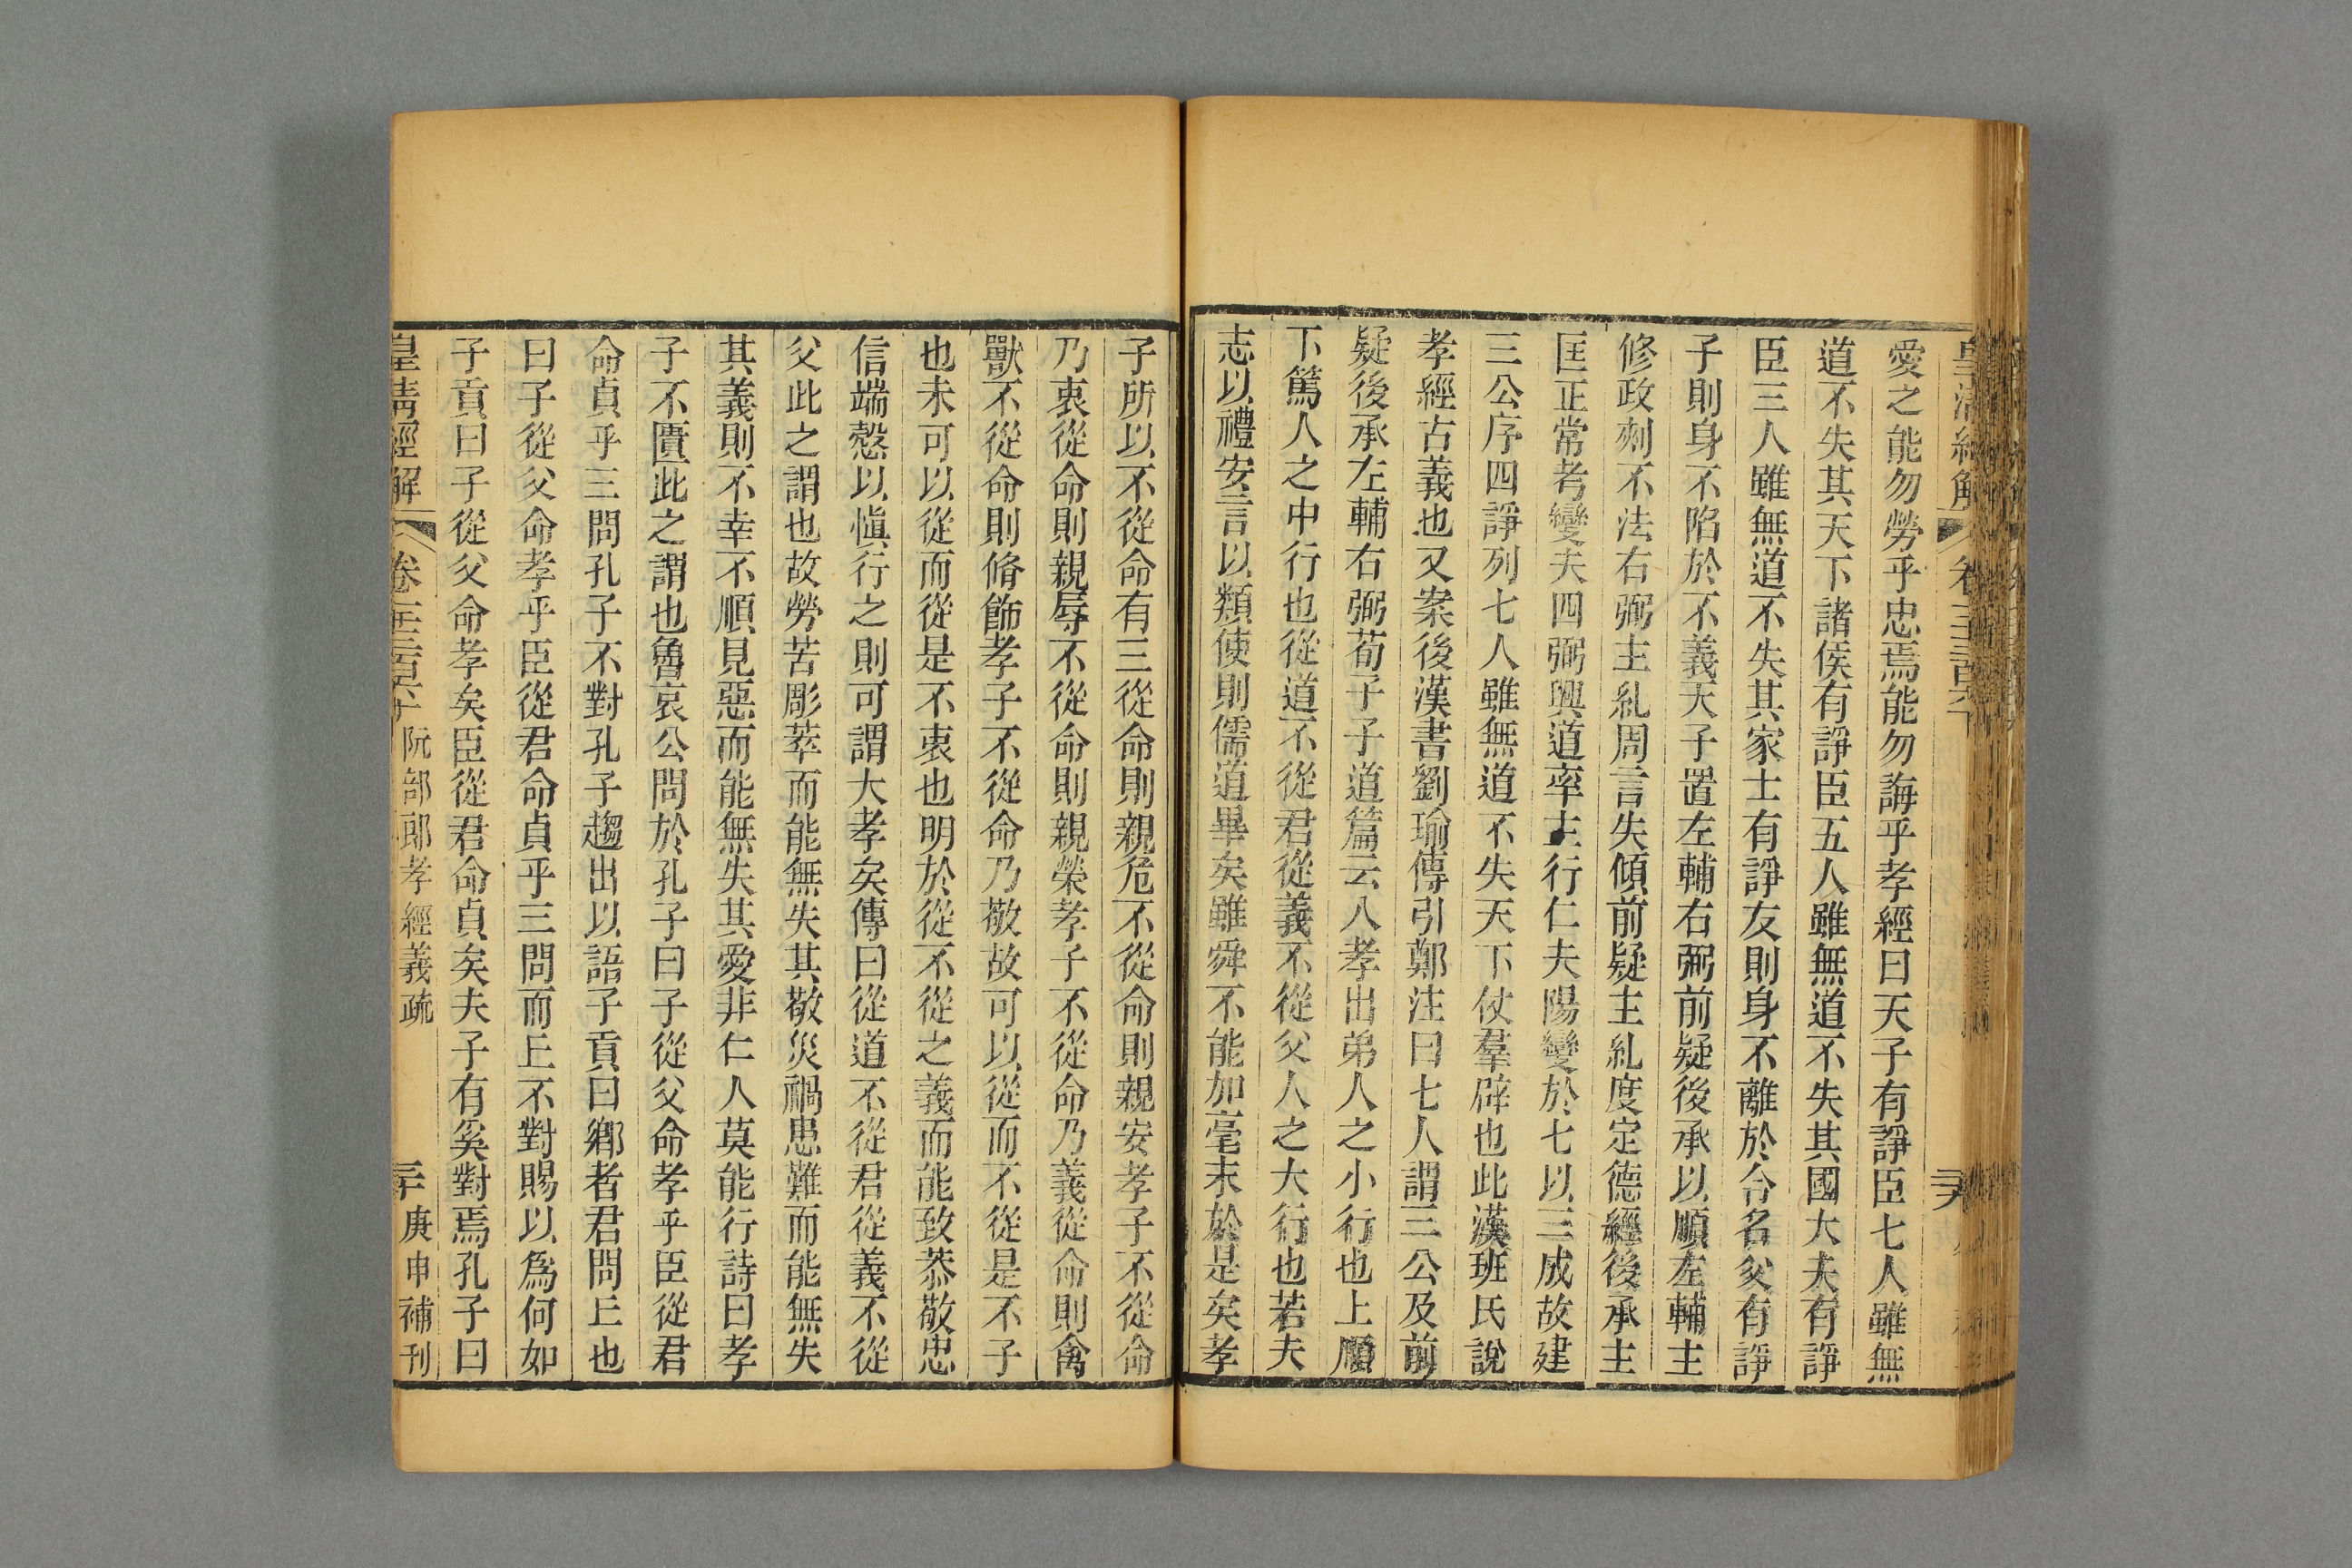 愛之能勿勞乎忠焉能勿誨乎孝經曰天子有諍臣七人雖無
道不失其天下諸侯有諍臣五人雖無道不失其國大夫有諍
臣三人雖無道不失其家士有諍友則身不離於令名父有諍
子則身不陷於不義天子置左輔右弼前疑後承以順左輔主
修政刺不法右弼主糺周言失傾前疑主糺度定德經後承主
匡正常考變夫四弼興道率主行仁夫陽變於七以三成故建
三公序四諍列七人雖無道不失天下仗羣辟也此漢班氏說
孝經古義也又案後漢書劉瑜傳引鄭注曰七人謂三公及前
疑後承左輔右弼荀子子道篇云入孝出弟人之小行也上順
下篤人之中行也從道不從君從義不從父人之大行也若夫
志以禮安言以類使則儒道畢矣雖舜不能加毫末於是矣孝
子所以不從命有三從命則親危不從命則親安孝子不從命
乃衷從命則親辱不從命則親榮孝子不從命乃義從命則禽
獸不從命則脩飾孝子不從命乃敬故可以從而不從是不子
也未可以從而從是不衷也明於從不從之義而能致恭敬忠
信端慤以愼行之則可謂大孝矣傳曰從道不從君從義不從
父此之謂也故勞苦彫萃而能無失其敬災禍患難而能無失
其義則不幸不順見惡而能無失其愛非仁人莫能行詩曰孝
子不匱此之謂也魯哀公問於孔子曰子從父命孝乎臣從君
命貞乎三問孔子不對孔子趨出以語子貢曰鄉者君問丘也
曰子從父命孝乎臣從君命貞乎三問而丘不對賜以爲何如
子貢曰子從父命孝矣臣從君命貞矣夫子有奚對焉孔子曰
皇清經解 卷 阮部郎孝經義疏 三十 庚申補刊